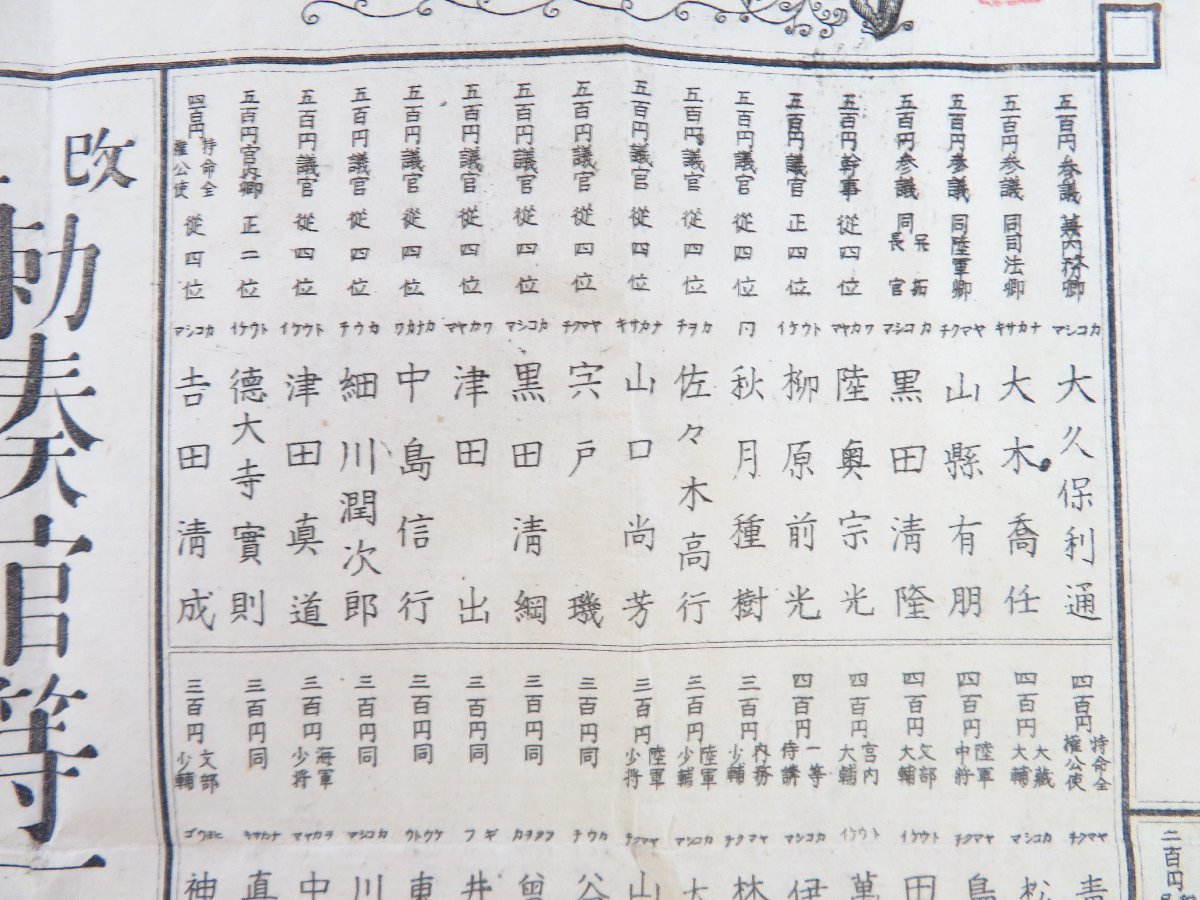 五百円参議兼内務卿 カコシマ 大久保利通
五百円参議同司法卿 ナカサキ 大木喬任
五百円参議同陸軍卿 ヤマクチ 山縣有朋
五百円参議同開拓長官 カコシマ 黒田清隆
五百円幹事從四位 ワカヤマ 陸奥宗光
五百円議官正四位 トウケイ 柳原前光
五百円議官從四位 秋月種樹
五百円議官從四位 カヲチ 佐々木高行
五百円議官從四位 ナカサキ 山口尚芳
五百円議官從四位 ヤマクチ 宍戸璣
五百円議官從四位 カコシマ 黒田清綱
五百円議官從四位 ワカヤマ 津田出
五百円議官從四位 カナカワ 中島信行
五百円議官從四位 カウチ 細川潤次郎
五百円議官從四位 トウケイ 津田真道
五百円宮内卿正二位 トウケイ 德大寺實則
四百円特命全權公使從四位 カコシマ 吉田清成
四百円特命全權公使 ヤマクチ 青
四百円大藏大輔 カコシマ 松
四百円陸軍中将 ヤマクチ 鳥
四百円文部大輔 トウケイ 田
四百円宮内大輔 トウケイ 萬
四百円一等侍講 カコシマ 伊
三百円内務少輔 ヤマクチ 林
三百円陸軍少輔 カコシマ 大
三百円陸軍少将 ヤマクチ 山
三百円同 カウチ 谷
三百円同 曽
三百円同 ギフ 井
三百円同 トウケウ 東
三百円同 カコシマ 川
三百円海軍少将 ヲカヤマ 中
三百円同 ナカサキ 真
三百円文部少輔 ヒヨウゴ 神
改
勅奏官等一
二百円